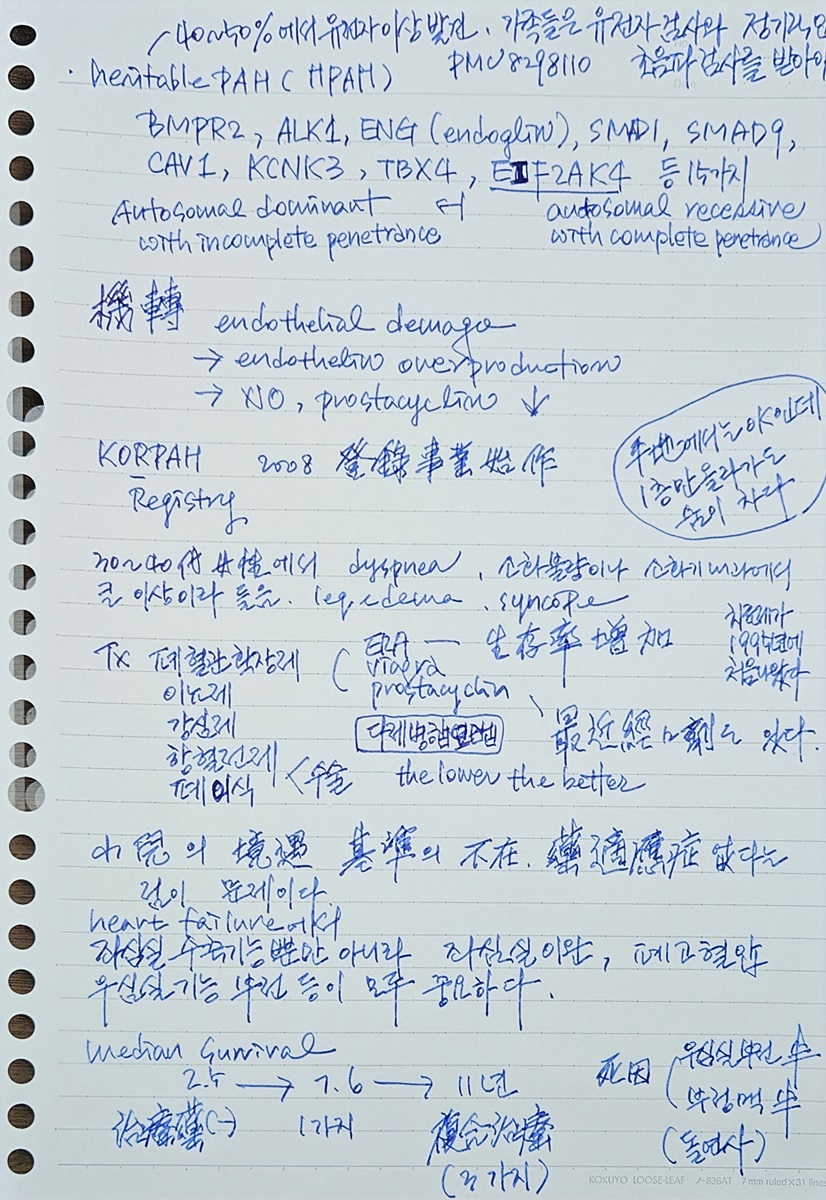 40~50%에서 유전자이상 발견. 가족들은 유전자검사와 정기적인
· heritable PAH ( HPAH ) PMC8298110 초음파검사를 받아야
BMPR2, ALK1, ENG (endoglin), SMAD1, SMAD9,
CAV1, KCNK3, TBX4, EIF2AK4 등 15가지
Autosomal dominant autosomal recessive
with incomplete penetrance with complete penetrance
機轉 endothelial demage
→ endothelin overproduction
→ NO, prostacyclin ↓
KORPAH 2008 登錄事業始作
Registry
平地에서는 OK인데
1층만 올라가도
숨이 차다
30~40代 女性에서 dyspnea, 소화불량이나 소화기내과에서
큰 이상이라 들음. leg edema. syncope
Tx 폐혈관확장제 ERA — 生存率增加
이뇨제 viagra
강심제 prostacyclin
항혈전제 다제병합요법 最近經口劑도 있다.
폐이식 < 수술 the lower the better
치료제가
1995년에
처음나왔다
小兒의 境遇 基準의 不在. 藥適應症 없다는
것이 문제이다.
heart failure에서
좌심실 수축기능뿐만 아니라 좌심실이완, 폐고혈압
우심실기능 부전 등이 모두 중요하다.
median survival
2.5 → 7.6 → 11년
治療藥(-) 1가지 複合治療
(3가지)
死因 우심실부전 半
부정맥 半
(돌연사)
KOKUYO LOOSE-LEAF ノ-836AT 7 mm ruled×31 lines